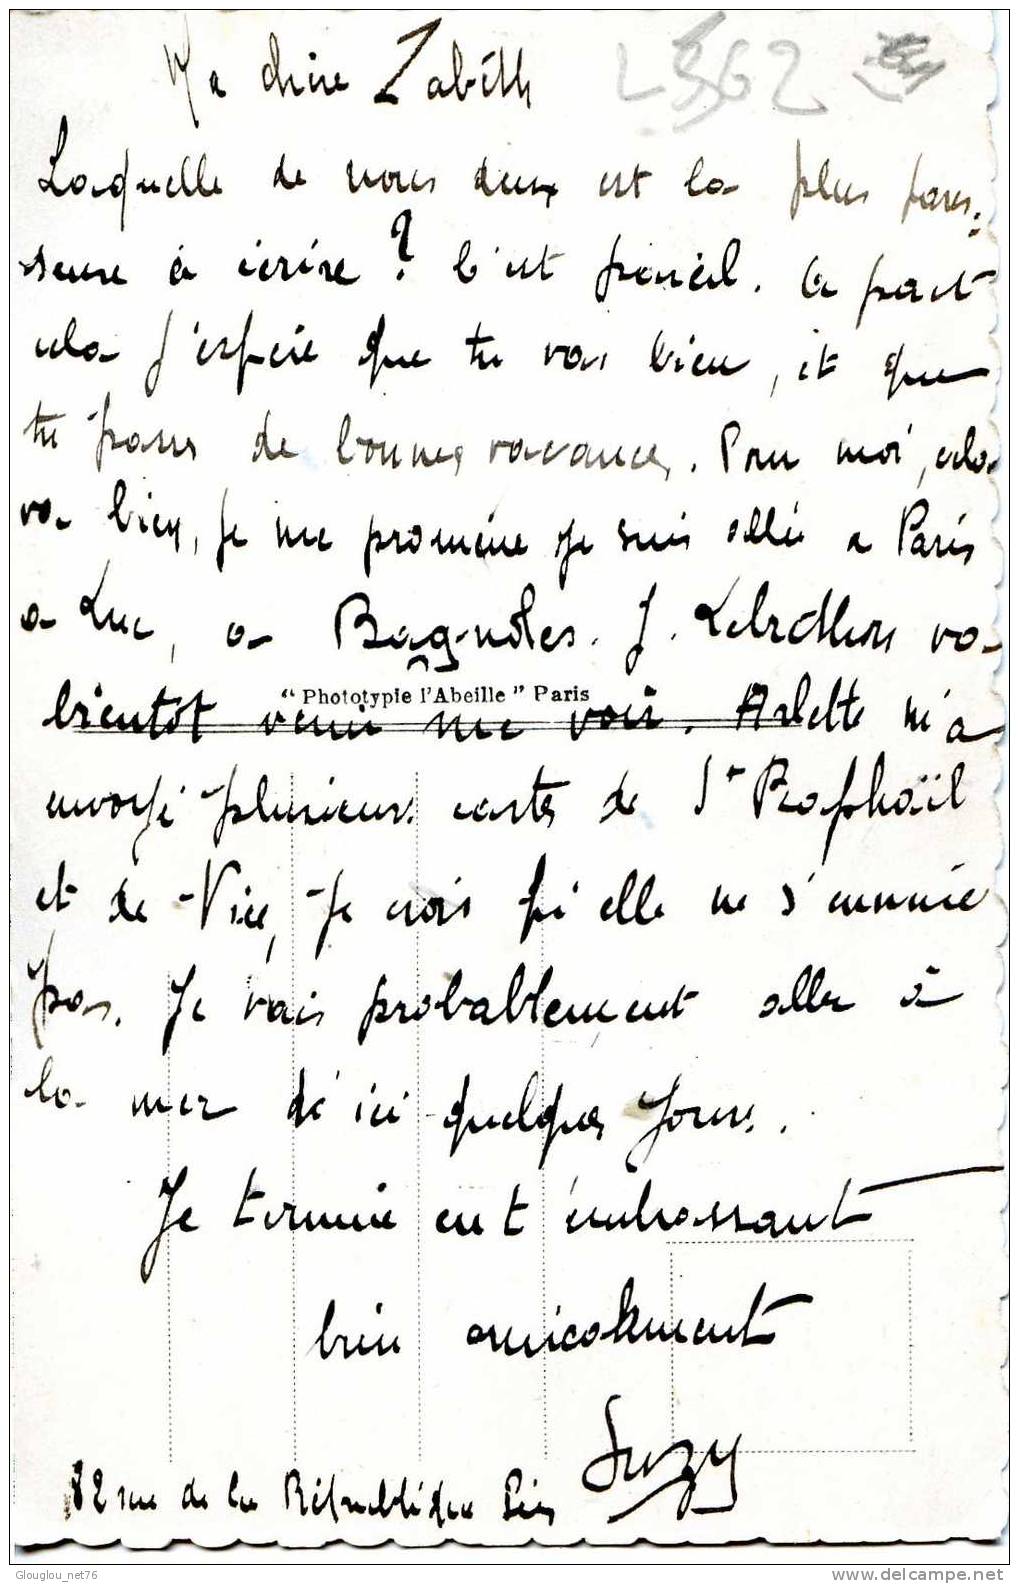 Ma chère Zabeth
L362
Laquelle de nous deux est la plus pares-
seuse à écrire ? C'est pareil. A part
cela j'espère que tu vas bien, et que
tu passes de bonnes vacances. Pour moi, cela
va bien, je me promène je suis allée a Paris
a Luc, a Bagnôles. J. va
"Phototypie l'Abeille" Paris
bientôt venir me voir. Arlette m'a
envoyé plusieurs cartes de St Raphaël
et de Nice, je crois qu'elle ne s'ennuie
pas. Je vais probablement aller à
la mer d'ici quelques jours.
Je termine en t'embrassant
bien amicalement
Suzy
82 rue de la République
Glouglou_net76
www.delcampe.net